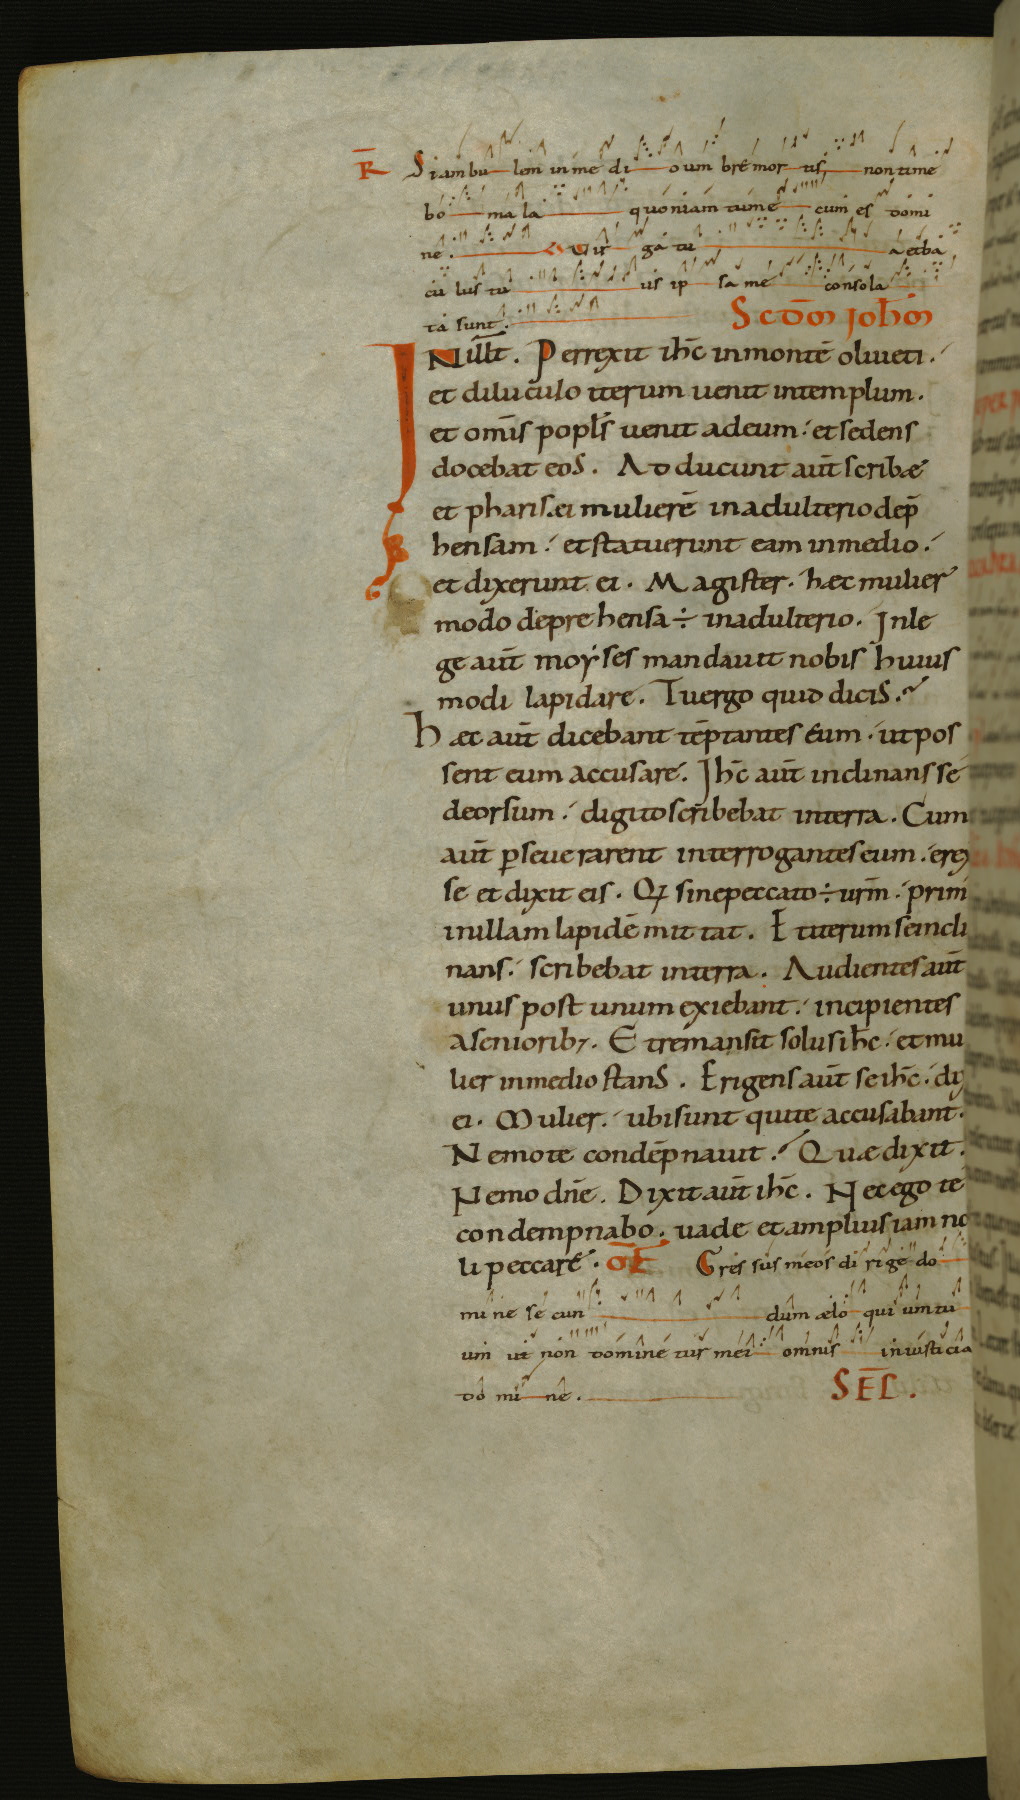 R̄ Si ambu lem in me di o um bre mor tis, non time
bo ma la quoniam tu me cum es domi
ne. V Vir ga tu a et ba
cu lus tu us ip sa me consola
ta sunt. Scdm johm
IN illt. Perrexit ihc in monte oliueti.
et diluculo iterum uenit intemplum.
et omis popls uenit adeum. et sedens
docebat eos. Adducunt aut scribæ
et pharisæi mulierē inadulterio dep̄
hensam. et statuerunt eam inmedio.
et dixerunt ei. Magister. hæc mulier
modo deprehensa ÷ inadulterio. Inle
ge aut̄ moyses mandauit nobis huius
modi lapidare. Tu ergo quid dicis.
Hæc aut̄ dicebant tēptantes eum. ut pos
sent eum accusare. Ihc̄ aut̄ inclinans se
deorsum. digito scribebat interra. Cum
aut̄ perseuerarent interrogantes eum. erex
se et dixit eis. Q sinepeccato ÷ urm̄. prim
inillam lapidē mittat. Et iterum seincli
nans. scribebat interra. Audientes aut̄
unus post unum exiebant. incipientes
asenioribꝫ. Et remansit solus ihc̄. et mu
lier inmedio stans. Erigens aut̄ se ihc̄. dix
ei. Mulier. ubi sunt qui te accusabant.
Nemo te condēpnauit. Quæ dixit.
Nemo dn̄e. Dixit aut̄ ihc̄. Nec ego te
condempnabo. uade et amplius iam no
li peccare. OF Gres sus meos di ri ge do
mi ne se cun dum ælo qui um tu
um ut non domine tur mei omnis iniusticia
do mi ne. SED.